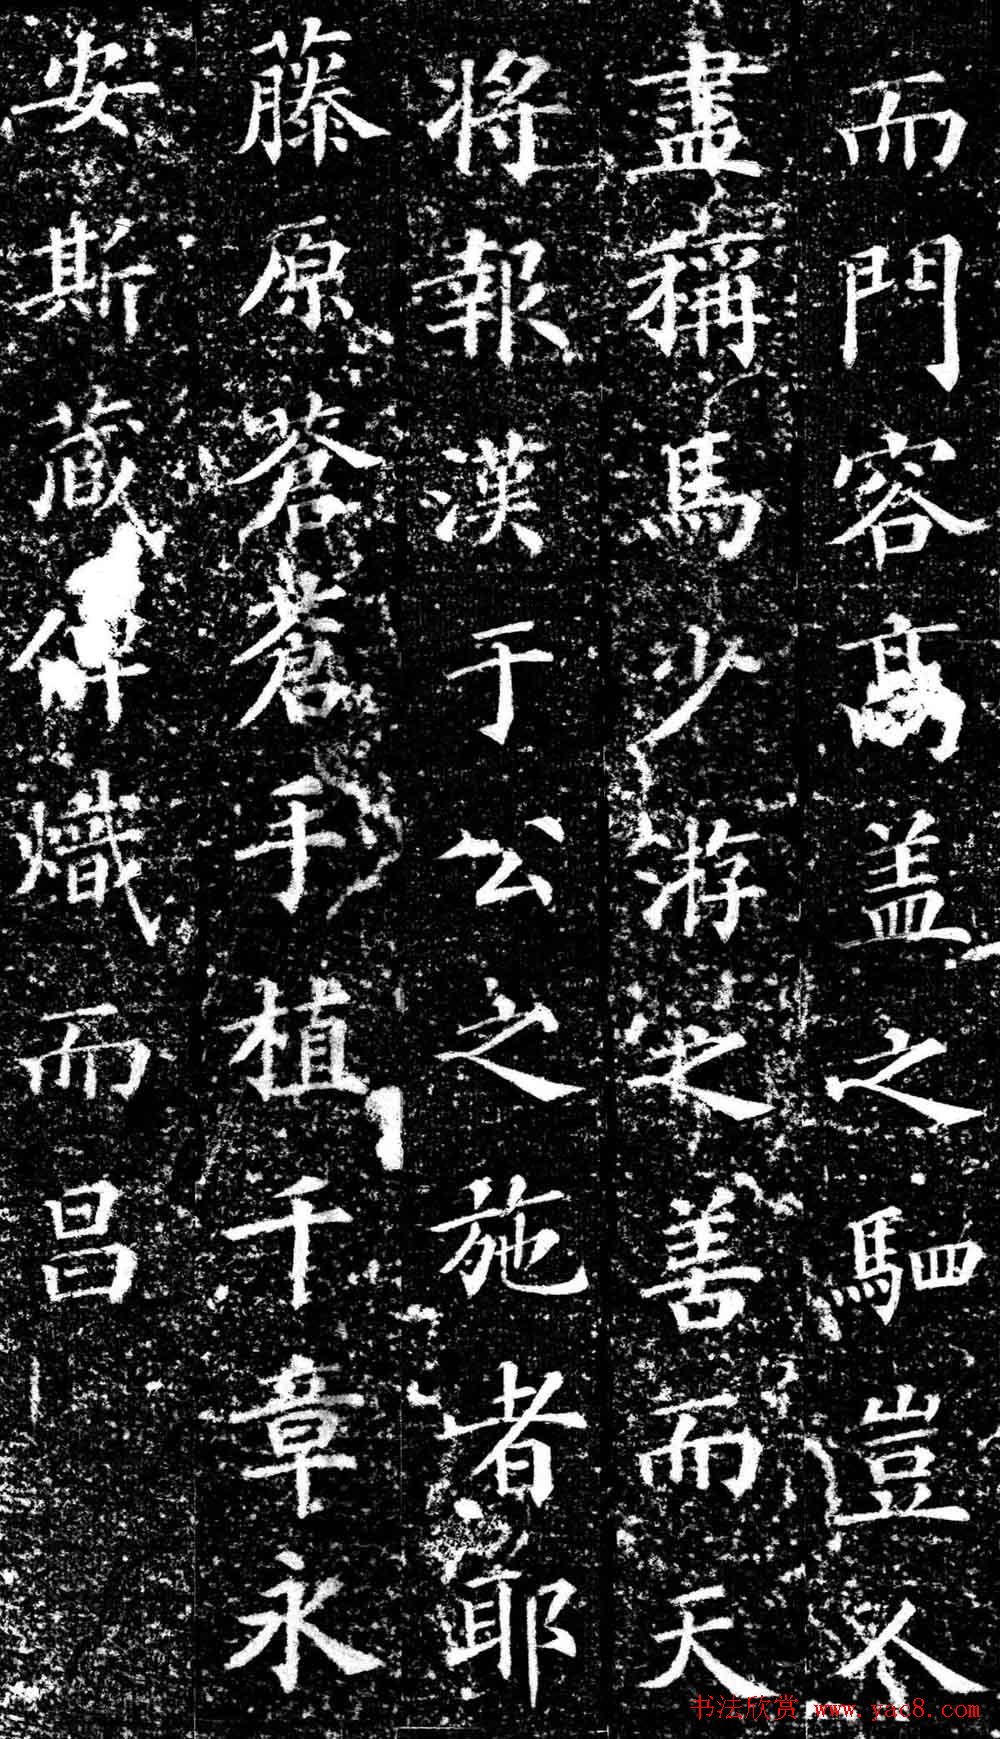 而門容高盖之駟豈不
盡稱馬少游之善而天
將報漢于公之施者耶
藤原蒼蒼手植千章永
安斯藏俾熾而昌
书法欣赏 www.yac8.com